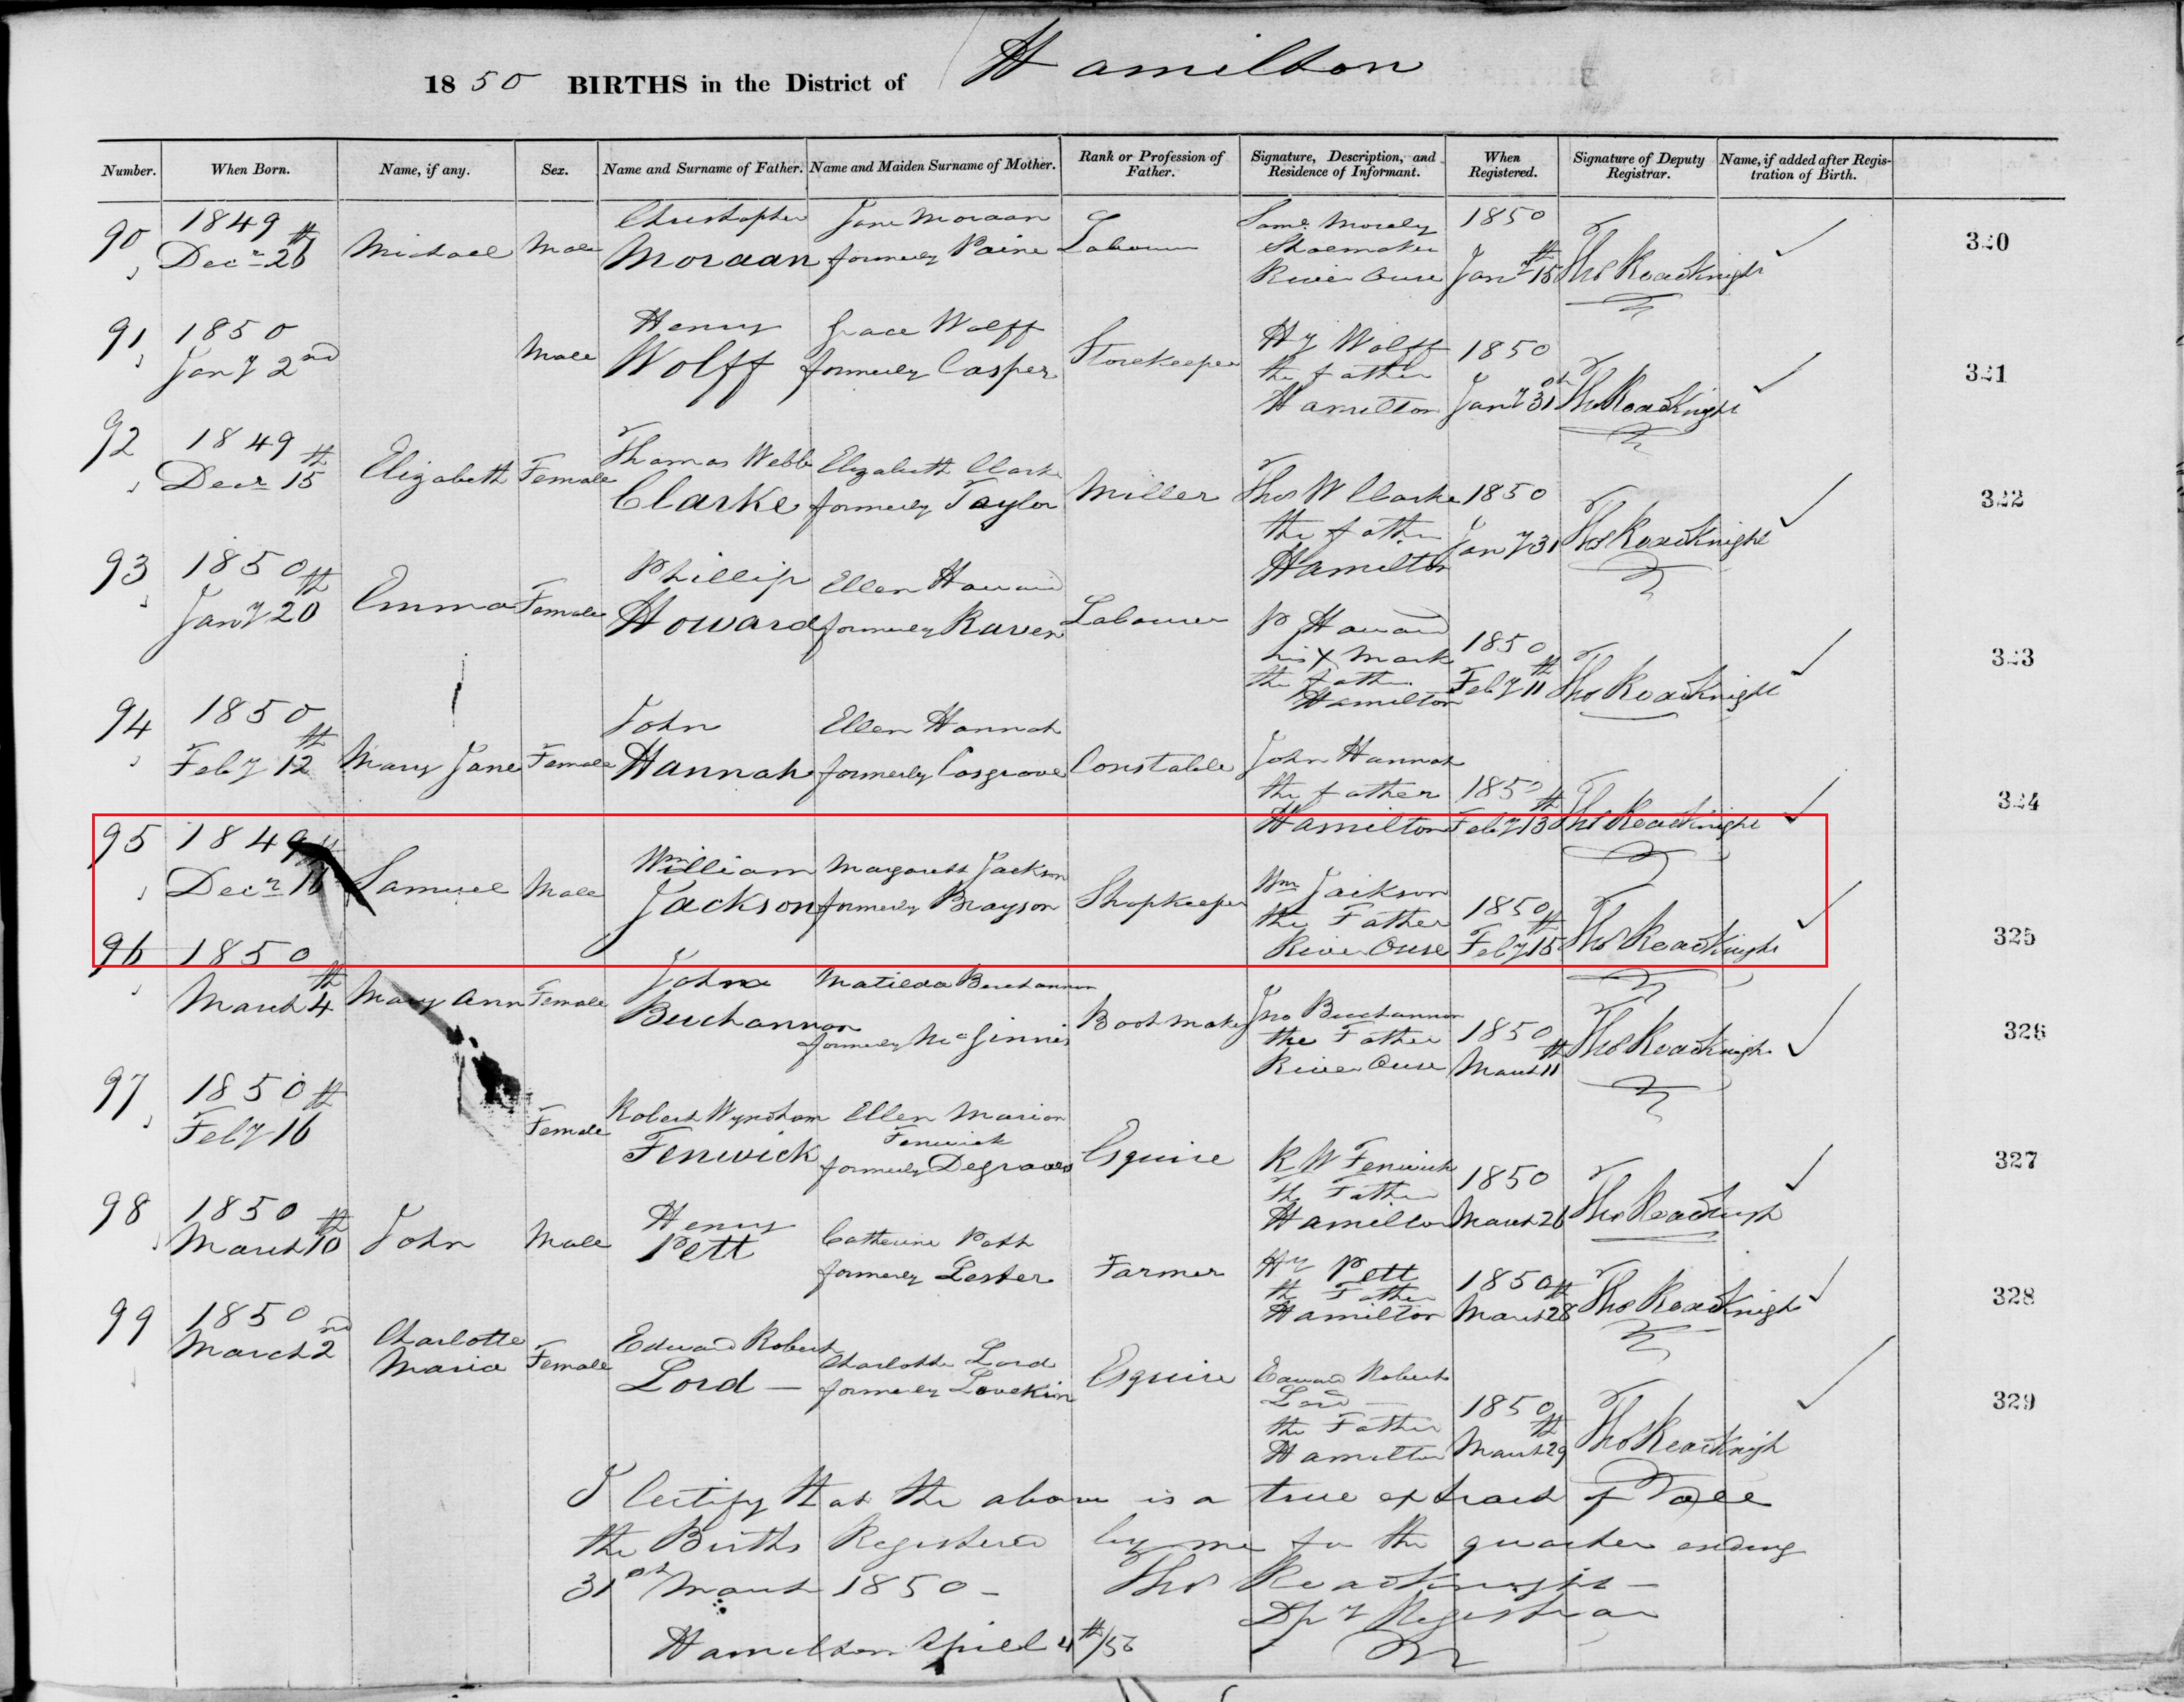 1850 BIRTHS in the District of Hamilton
Number. When Born. Name, if any. Sex. Name and Surname of Father. Name and Maiden Surname of Mother. Rank or Profession of Father. Signature, Description, and Residence of Informant. When Registered. Signature of Deputy Registrar. Name, if added after Registration of Birth.
90 1849 Decr 26th Michael Male Christopher Moraan Jane Moraan formerly Paine Labourer Saml Morely Shoemaker River Ouse 1850 Jany 15th Thos Roadknight 320
91 1850 Jany 2nd Male Henry Wolff Grace Wolff formerly Casper Storekeeper Hy Wolff the father Hamilton 1850 Jany 31st Thos Roadknight 321
92 1849 Decr 15th Elizabeth Female Thomas Webb Clarke Elizabeth Clarke formerly Taylor Miller Thos W Clarke the father Hamilton 1850 Jany 31 Thos Roadknight 322
93 1850 Jany 20th Emma Female Phillip Howard Ellen Howard formerly Raven Labourer P Howard his X Mark the father Hamilton 1850 Feby 11th Thos Roadknight 323
94 1850 Feby 12th Mary Jane Female John Hannah Ellen Hannah formerly Cosgrove Constable John Hannah the father Hamilton 1850 Feby 13th Thos Roadknight 324
95 1849 Decr 16th Samuel Male William Jackson Margarett Jackson formerly Brayson Shopkeeper Wm Jackson the Father River Ouse 1850 Feby 15th Thos Roadknight 325
96 1850 March 4th Mary Ann Female John Buchannan Matilda Buchannan formerly McGinnis Bootmaker Jno Buchannan the Father River Ouse 1850 March 11th Thos Roadknight 326
97 1850 Feby 16th Female Robert Wyndham Fenwick Ellen Marion Fenwick formerly Degraves Esquire R W Fenwick The Father Hamilton 1850 March 26 Thos Roadknight 327
98 1850 March 10th John Male Henry Pett Catherine Pett formerly Lester Farmer Hy Pett the Father Hamilton 1850 March 28th Thos Roadknight 328
99 1850 March 2nd Charlotte Maria Female Edward Robert Lord Charlotte Lord formerly Lovekin Esquire Edward Robert Lord the Father Hamilton 1850 March 29th Thos Roadknight 329
I Certify that the above is a true extract of all
the Births Registered by me for the quarter ending
31st March 1850 - Thos Roadknight -
Dpy Registrar
Hamilton April 4th/50